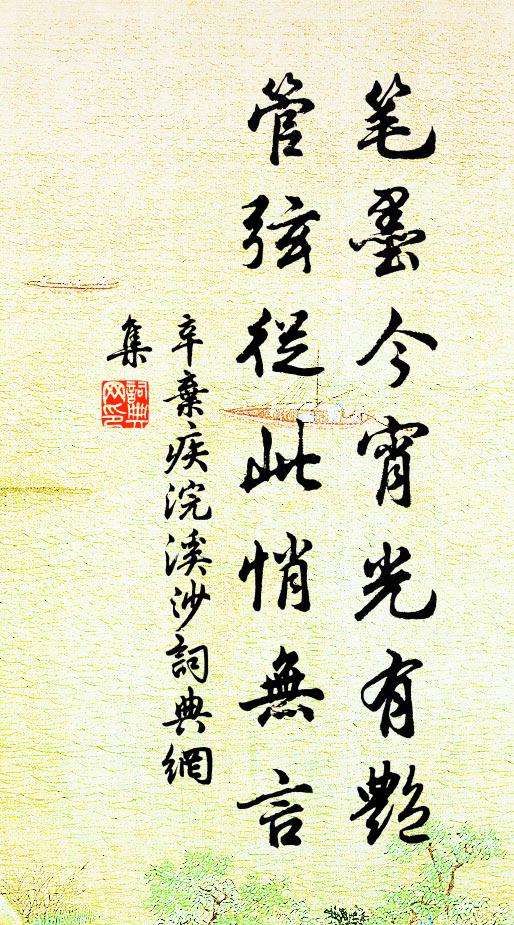 笔墨今宵光有艷
管弦從此悄無言
辛棄疾浣溪沙詞典網
集
詞典網印